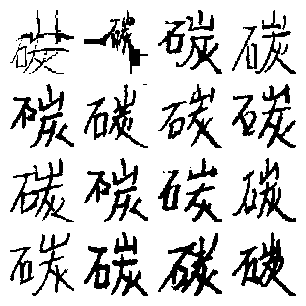 碳碳碳碳
碳碳碳碳
碳碳碳碳
碳碳碳碳